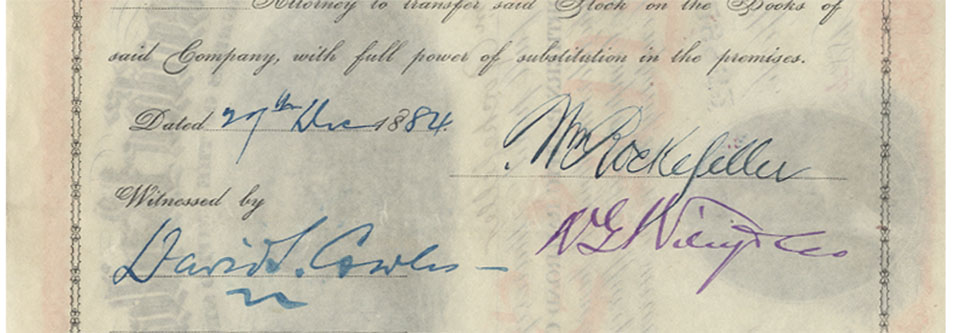 Attorney to transfer said Stock on the Books of
said Company, with full power of substitution in the premises.
Dated 29th Dec 1884.
Wm Rockefeller
Witnessed by
David S. Cowles